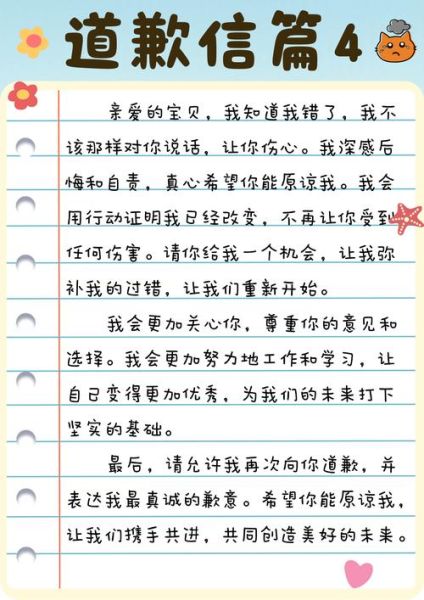 道歉信篇4
亲爱的宝贝，我知道我错了，我不
该那样对你说话，让你伤心。我深感后
悔和自责，真心希望你能原谅我。我会
用行动证明我已经改变，不再让你受到
任何伤害。请你给我一个机会，让我弥
补我的过错，让我们重新开始。
我会更加关心你，尊重你的意见和
选择。我会更加努力地工作和学习，让
自己变得更加优秀，为我们的未来打下
坚实的基础。
最后，请允许我再次向你道歉，并
表达我最真诚的歉意。希望你能原谅我，
让我们携手共进，共同创造美好的未来。